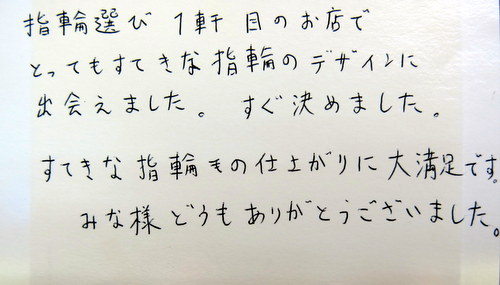 指輪選び 1軒目のお店で
とってもすてきな指輪のデザインに
出会えました。 すぐ決めました。
すてきな指輪もの仕上がりに大満足です。
みな様どうもありがとうございました。